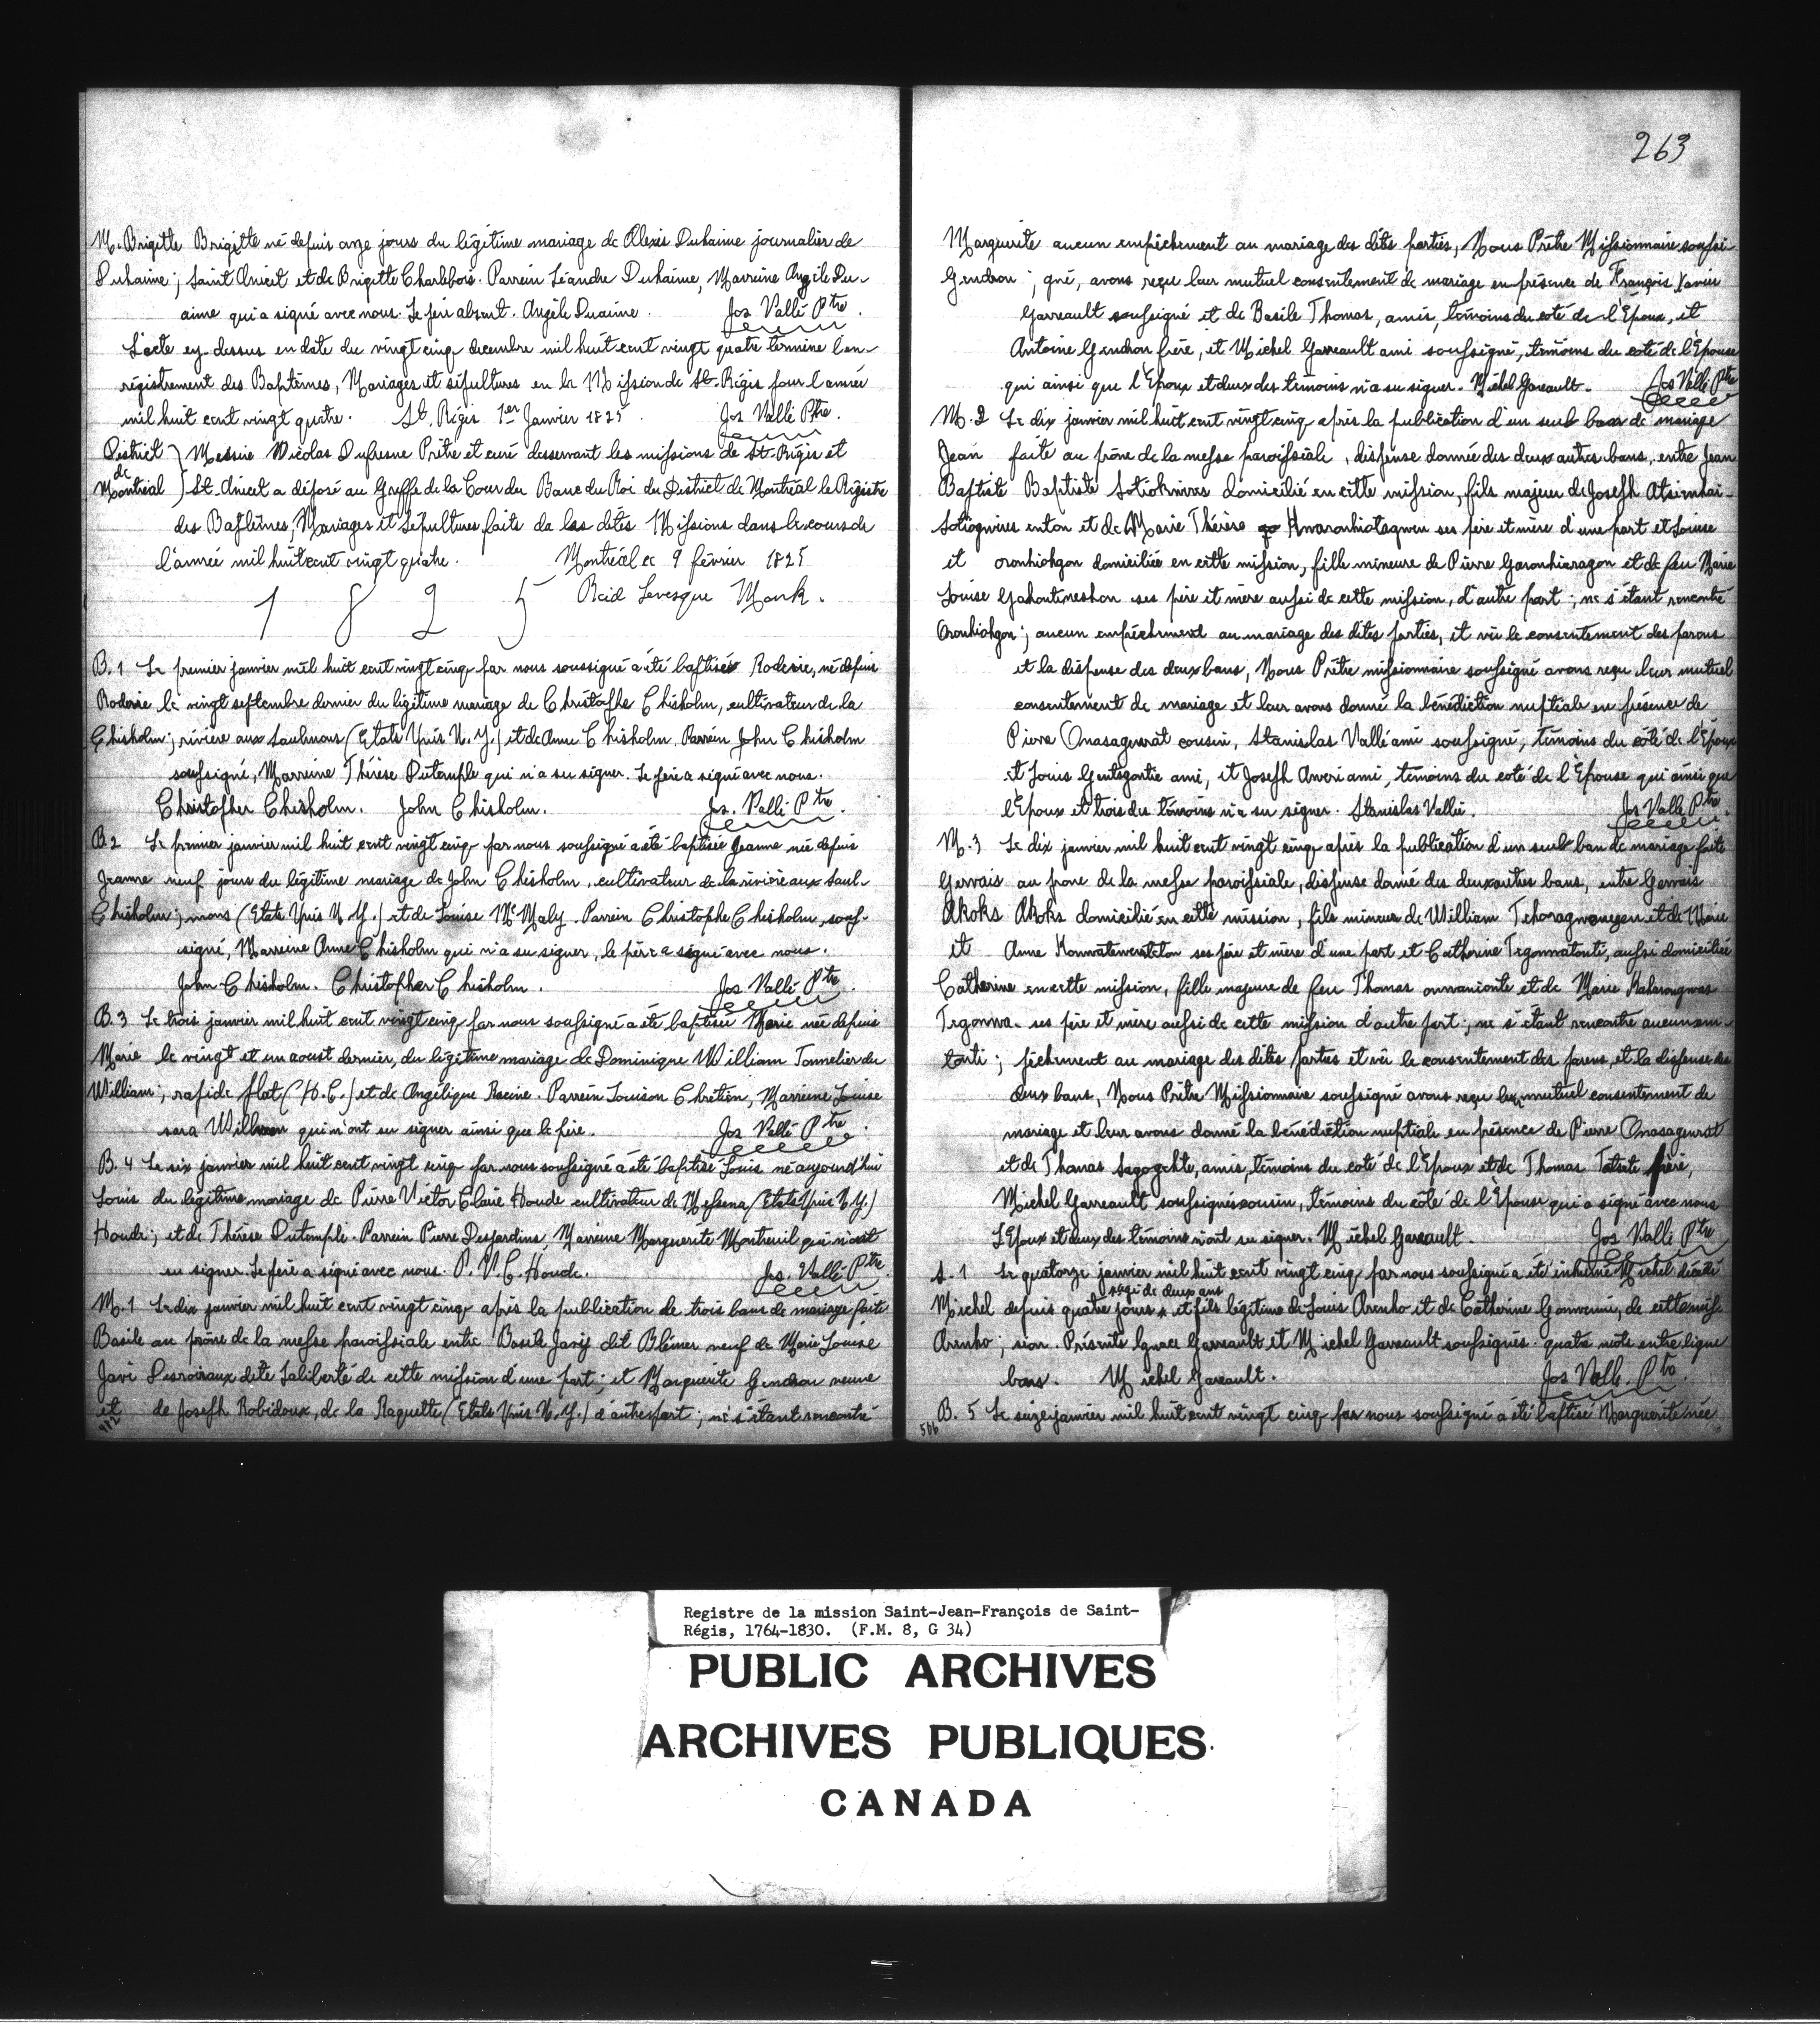 M. Brigitte Brigitte né depuis onze jours du légitime mariage de Alexis Duhaime journalier de
Duhaime; Saint Anicet et de Brigitte Charlebois. Parrein Léandre Duhaime, Marreine Angèle Du-
aime qui a signé avec nous. Le père absent. Angèle Duaime. Jos Vallé Ptre.
L'acte cy-dessus en date du vingt cinq decembre mil huit cent vingt quatre termine l'en-
régistrement des Baptêmes, Mariages et sépultures en la Mission de St. Régis pour l'année
mil huit cent vingt quatre. St. Régis 1er Janvier 1825 Jos Vallé Ptre.
District Messire Nicolas Dufresne Prêtre et curé desservant les missions de St. Régis et
de
Montréal St. Anicet a déposé au Greffe de la Cour du Banc du Roi du District de Montréal le Régistre
des Baptêmes, Mariages et Sépultures faits da les dites Missions dans le cours de
l'année mil huit cent vingt quatre. Montréal ce 9 février 1825
1 8 2 5 Reid Levesque Monk.
B. 1 Le premier janvier mil huit cent vingt cinq par nous soussigné a été baptisé Roderic, né depuis
Roderic le vingt septembre dernier du légitime mariage de Christophe Chisholm, cultivateur de la
Chisholm; rivière aux Saulmons (Etats Unis N. Y.) et de Anne Chisholm. Parrein John Chisholm
soussigné, Marreine Thérèse Dutemple qui n'a su signer. Le père a signé avec nous.
Christopher Chisholm. John Chisholm. Jos. Vallé Ptre.
B. 2 Le premier janvier mil huit cent vingt cinq par nous soussigné a été baptisée Jeanne née depuis
Jeanne neuf jours du légitime mariage de John Chisholm, cultivateur de la rivière aux Saul-
Chisholm; mons (Etats Unis N. Y.) et de Louise McMaly. Parrein Christophe Chisholm, sous-
signé, Marreine Anne Chisholm qui n'a su signer, le père a signé avec nous.
John Chisholm. Christopher Chisholm. Jos Vallé Ptre.
B. 3 Le trois janvier mil huit cent vingt cinq par nous soussigné a été baptisée Marie née depuis
Marie le vingt et un aoust dernier, du légitime mariage de Dominique William Tonnelier du
William; rapide plat (H. C.) et de Angélique Racine. Parrein Louison Chrétien, Marreine Louise
sara qui n'ont su signer ainsi que le père. Jos Vallé Ptre.
B. 4 Le six janvier mil huit cent vingt cinq par nous soussigné a été baptisé Louis né aujourd'hui
Louis du légitime mariage de Pierre Victor Claire Houde cultivateur de Messena (Etats Unis N. Y.)
Houde; et de Thérèse Dutemple. Parrein Pierre Desjardins, Marreine Marguerite Montreuil qui n'ont
su signer. Le père a signé avec nous. P. V. C. Houde. Jos. Vallé Ptre.
M. 1 Le dix janvier mil huit cent vingt cinq après la publication de trois bans de mariage faite
Basile au prône de la messe paroissiale entre Basile Javis dit Blémer veuf de Marie Louise
Javi Desroiraux dite Laliberté de cette mission d'une part; et Marguerite Gendron veuve
et de Joseph Robidoux, de la Raquette (Etats Unis N. Y.) d'autre part; ne s'étant rencontré
263
Marguerite aucun empêchement au mariage des dites parties, Nous Prêtre Missionnaire soussi-
Gendron; gné, avons reçu leur mutuel consentement de mariage en présence de François Xavier
Garreault soussigné et de Basile Thomas, amis, témoins du coté de l'Époux, et
Antoine Gendron frère, et Michel Garreault ami soussigné, témoins du coté de l'Épouse
qui ainsi que l'Époux et deux des témoins n'a su signer. Michel Gareault. Jos Vallé Ptre
M. 2 Le dix janvier mil huit cent vingt cinq après la publication d'un seul ban de mariage
Jean faite au prône de la messe paroissiale, dispense donnée des deux autres bans, entre Jean
Baptiste Baptiste Sotioknires domicilié en cette mission, fils majeur de Joseph Atsienhai-
Sotiogwires enton et de Marie Thérèse Kwaronhiotagwen ses père et mère d'une part et Louise
et oronhiohgon domiciliée en cette mission, fille mineure de Pierre Garonhiaragon et de feu Marie
Louise Gahontineshon ses père et mère aussi de cette mission, d'autre part; ne s'étant rencontré
Oronhiohgon; aucun empêchement au mariage des dites parties, et vû le consentement des parens
et la dispense des deux bans, Nous Prêtre missionnaire soussigné avons reçu leur mutuel
consentement de mariage et leur avons donné la bénédiction nuptiale en présence de
Pierre Onasagenrat cousin, Stanislas Vallé ami soussigné, témoins du côté de l'Époux
et Louis Gentsgontie ami, et Joseph Averi ami, témoins du coté de l'Épouse qui ainsi que
l'Époux et trois des témoins n'a su signer. Stanislas Vallée. Jos Vallé Ptre.
M. 3 Le dix janvier mil huit cent vingt cinq après la publication d'un seul ban de mariage faite
Gervais au prone de la messe paroissiale, dispense donné des deux autres bans, entre Gervais
Akoks Akoks domicilié en cette mission, fils mineur de William Tehoragwanegen et de Marie
et Anne ses père et mère d'une part et Catherine Tegonwatonti, aussi domiciliée
Catherine en cette mission, fille majeure de feu Thomas onwanionte et de Marie Kaherongwas
Tegonwa- ses père et mère aussi de cette mission d'autre part; ne s'étant rencontré aucun em-
tonti; pêchement au mariage des dites parties et vû le consentement des parens, et la dispense des
deux bans, Nous Prêtre Missionnaire soussigné avons reçu leur mutuel consentement de
mariage et leur avons donné la bénédiction nuptiale en présence de Pierre Onasagenrat
et de Thomas Sagogehte, amis, témoins du coté de l'Époux et de Thomas Tatsate frère,
Michel Garreault soussigné cousin, témoins du côté de l'Épouse qui a signé avec nous
L'Époux et deux des témoins n'ont su signer. Michel Gareault. Jos Vallé Ptre
S. 1 Le quatorze janvier mil huit cent vingt cinq par nous soussigné a été inhumé Michel décédé
agé de deux ans
Michel depuis quatre jours et fils légitime de Louis Arenho et de Catherine Gonwenni, de cette mis-
Arenho; sion. Présents Ignace Garreault et Michel Garreault soussignés. quatre mots entre ligne
bons. Michel Gareault. Jos Vallé. Ptre.
B. 5 Le seize janvier mil huit cent vingt cinq par nous soussigné a été baptisé Marguerite née
506
Registre de la mission Saint-Jean-François de Saint-
Régis, 1764-1830. (F.M. 8, G 34)
PUBLIC ARCHIVES
ARCHIVES PUBLIQUES
CANADA